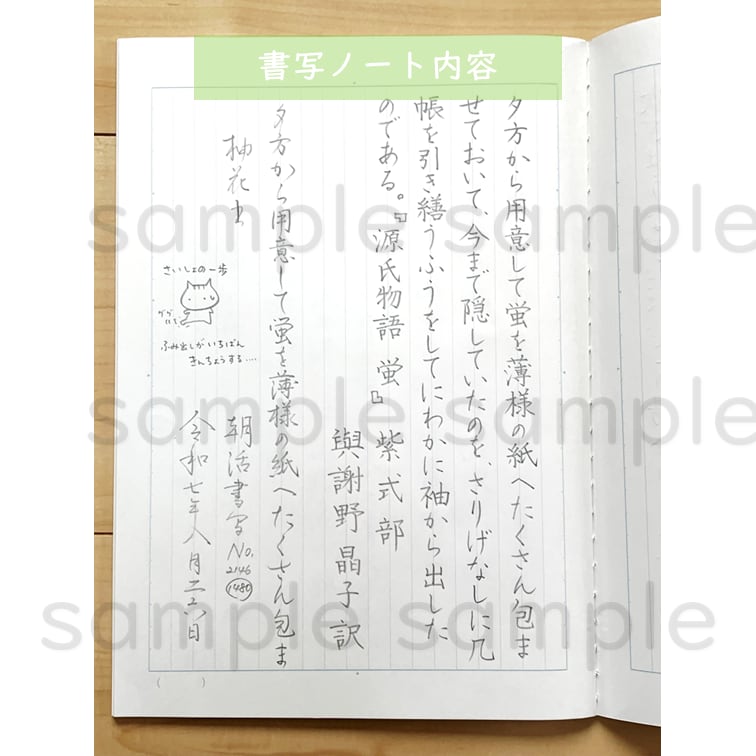 書写ノート内容
夕方から用意して蛍を薄様の紙へたくさん包ま
せておいて、今まで隠していたのを、さりげなしに几
帳を引き繕うふうをしてにわかに袖から出した
のである。『源氏物語 蛍』紫式部
與謝野晶子訳
夕方から用意して蛍を薄様の紙へたくさん包ま
柚花書
朝活書写No.
2146
1480
令和七年八月二六日
さいしょの一歩
ふみ出しがいちばん
きんちょうする....
sample sample
sample sample
sample sample